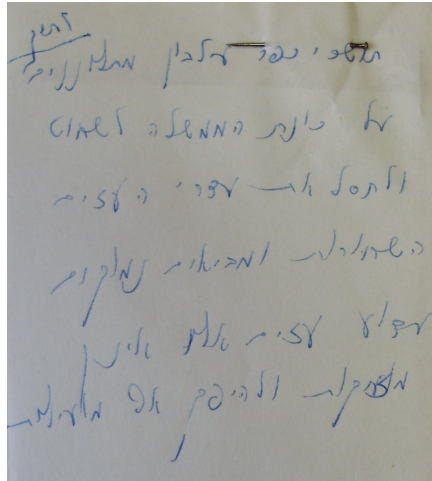 לתיק
תושבי כפר עילבון מתלוננים
על כוונת הממשלה לשחוט
ולחסל את עדרי העזים
השחורות ומביאים נמוקים
מדוע עזים אלה אינן
מזיקות ולהיפך אף מועילות